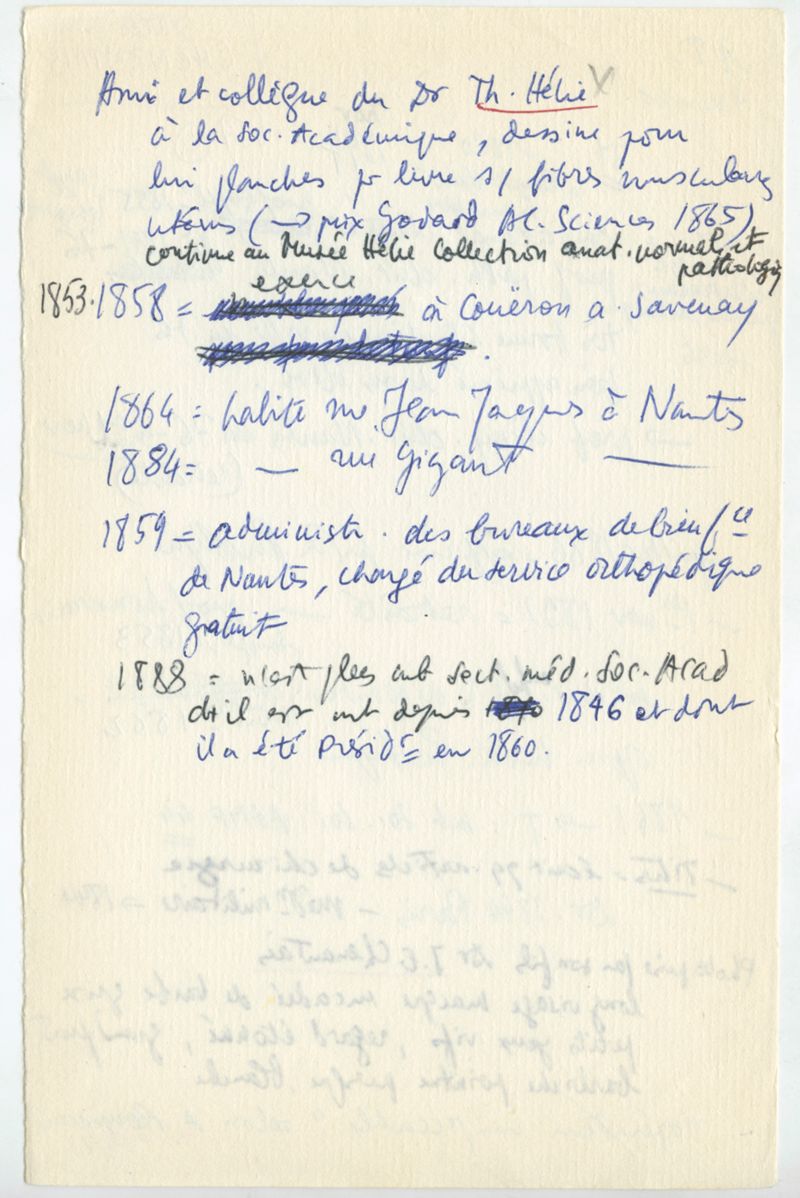 Ami et collègue du Dr Th. Hélie
à la Soc. Académique, dessine pour
lui planches pr livre s/ fibres musculaires
utérus (→ prix Godard Ac. Sciences 1865)
continue au Musée Hélie Collection anat. normale et
pathologiq
exerce
1853.1858 = à Couëron a. Savenay
1864 = habite rue Jean Jacques à Nantes
1884 = — rue Gigant —
1859 = administr. des bureaux de bienf.ce
de Nantes, chargé du service orthopédique
gratuit
1888 = n'est plus mb sect. méd. Soc. Acad
dt il est mb depuis 1846 et dont
il a été présidt en 1860.